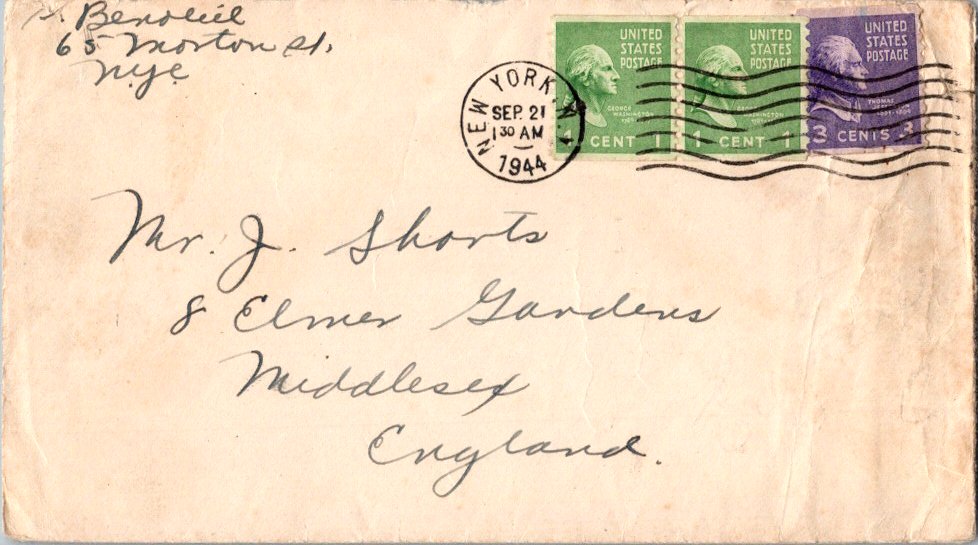 Benoliel
65 Morton St.
NYC
NEW YORK, N.Y.
SEP. 21
1 30 AM
1944
UNITED STATES POSTAGE
GEORGE WASHINGTON
1 CENT 1
UNITED STATES POSTAGE
GEORGE WASHINGTON
1 CENT 1
UNITED STATES POSTAGE
THOMAS JEFFERSON
3 CENTS 3
Mr. J. Shorts
8 Elmer Gardens
Middlesex
England.